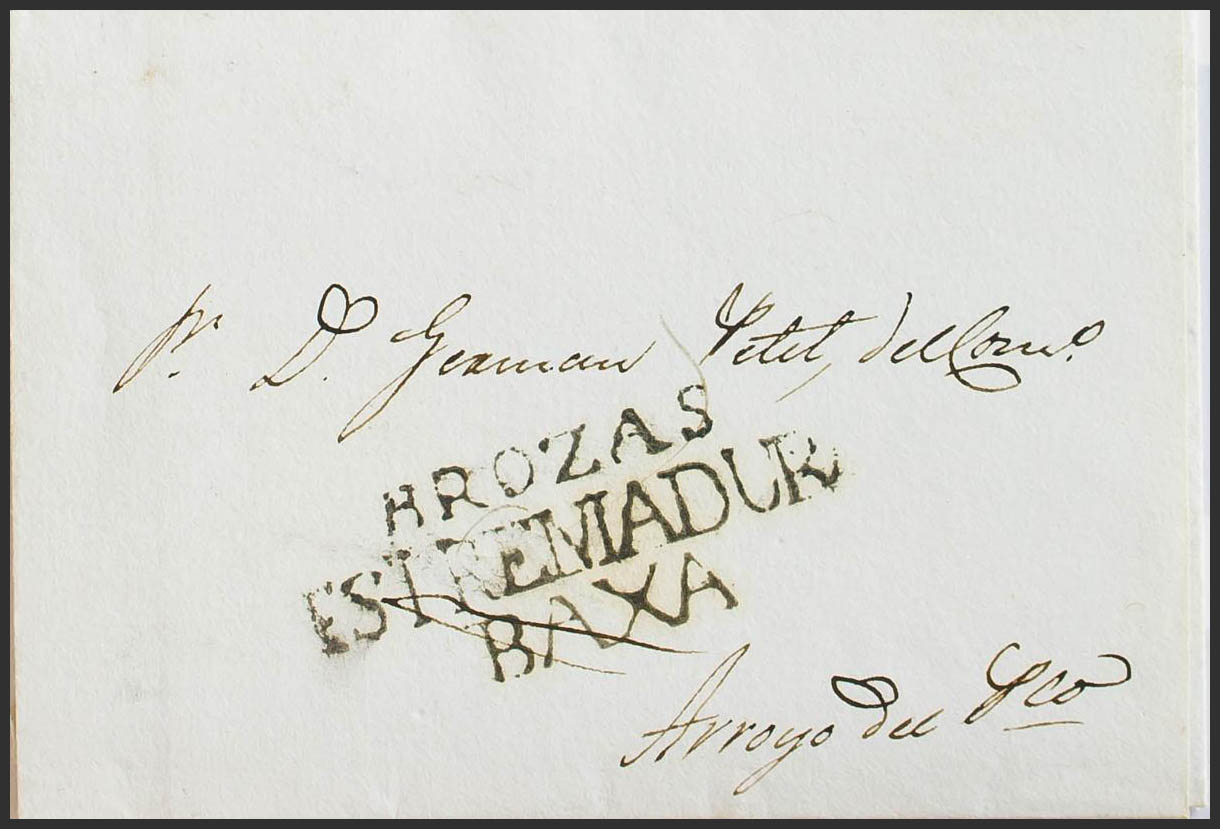 Pr. D. German Petit, del Como.
BROZAS
ESTREMADUR
BAXA
Arroyo del Pco